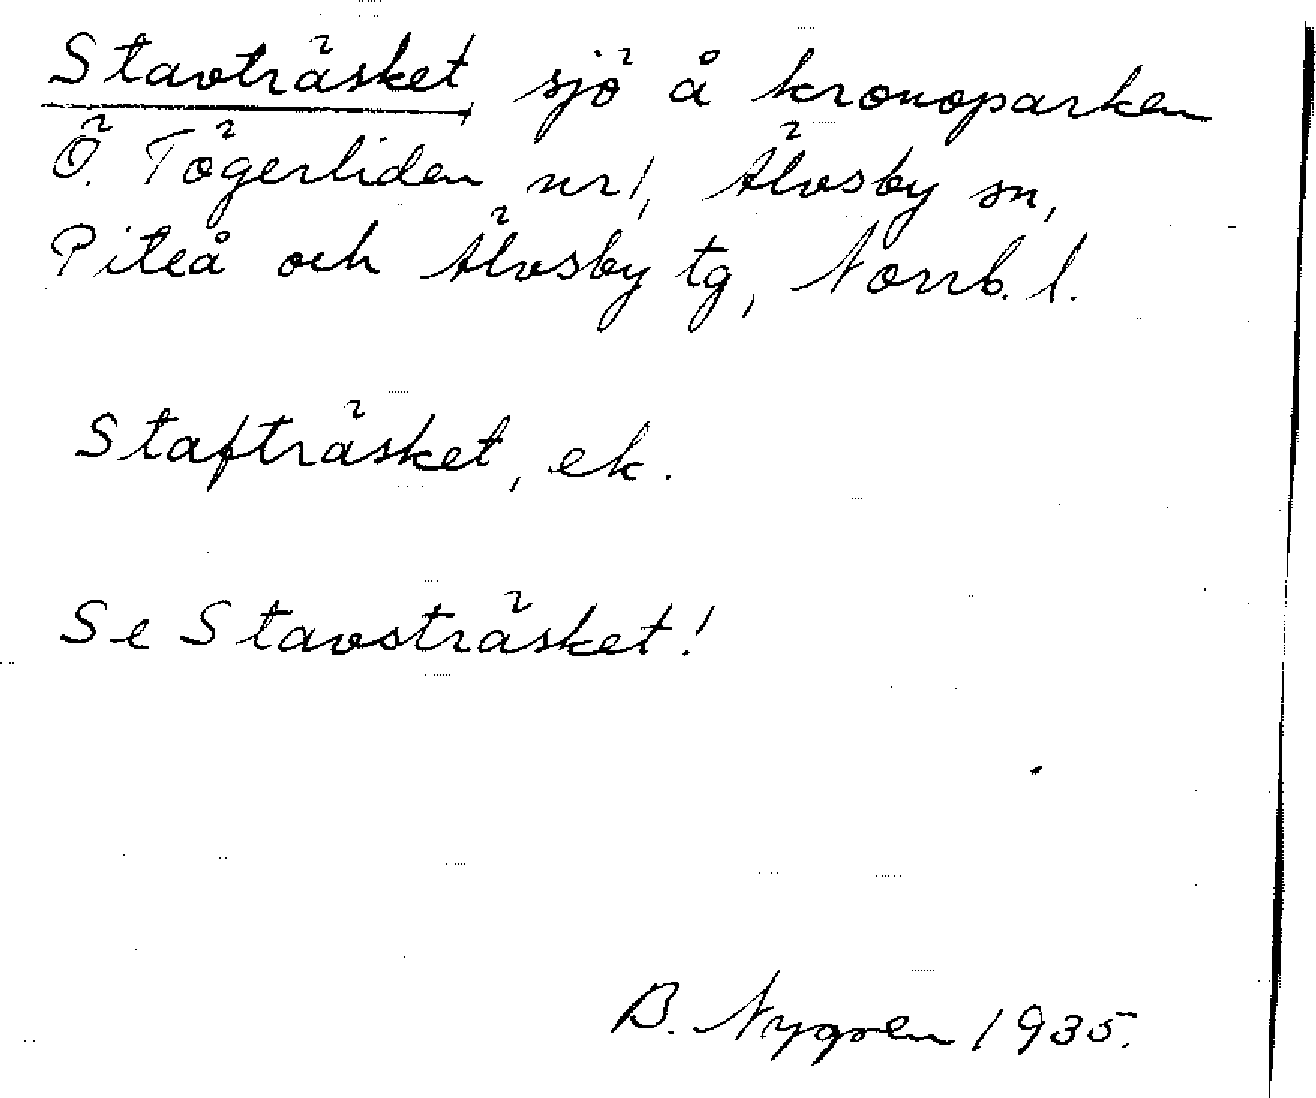 Stavträsket sjö å kronoparken
Ö. Tögerliden nr 1, Älvsby sn,
Piteå och Älvsby tg, Norrb. l.
Stafträsket, ek.
Se Stavsträsket!
B. Nygren 1935.